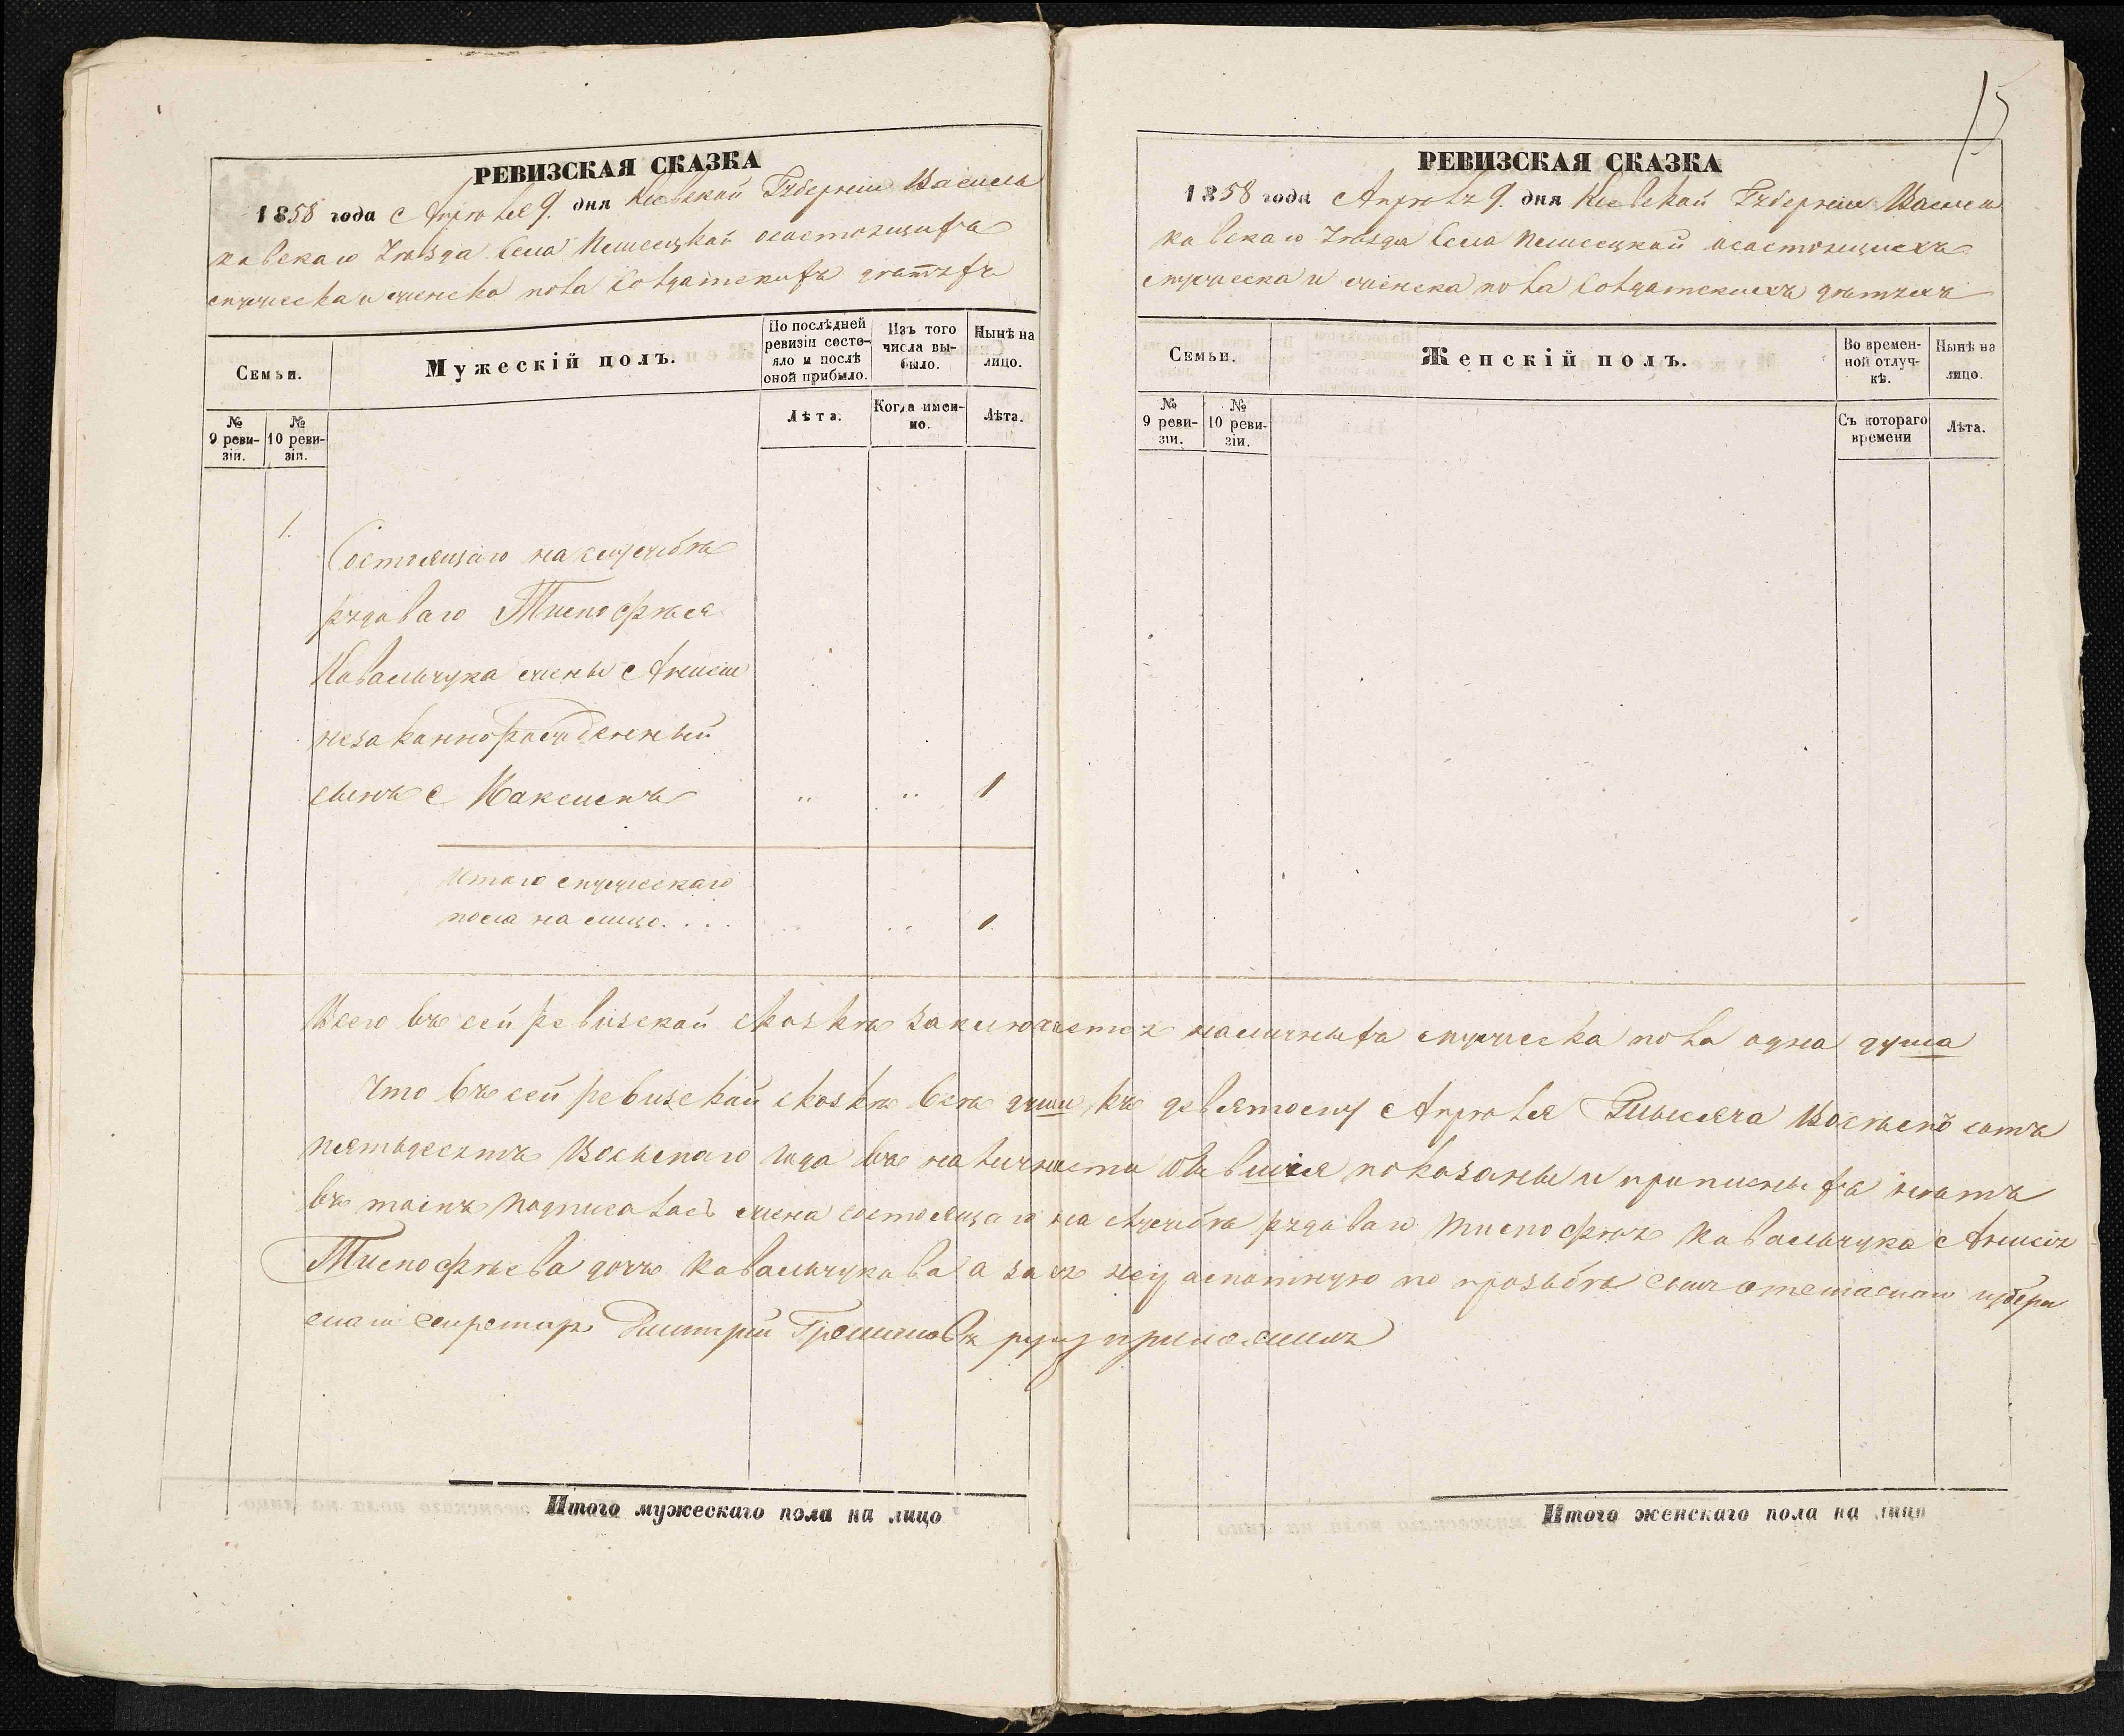 РЕВИЗСКАЯ СКАЗКА
1858 года Апреля 9. дня Киевской Губернии Василь
ковского Уѣзда Села осостоящихъ
мужеска и женска пола Солдатскихъ дѣтяхъ
Семьи.
Мужескій полъ.
По послѣдней ревизіи состояло и послѣ оной прибыло.
Изъ того числа выбыло.
Нынѣ на лицо.
№ 9 ревизіи.
№ 10 ревизіи.
Лѣта.
Когда именно.
Лѣта.
1.
Состоящаго на службѣ
рядоваго Тимофѣя
Ковальчука жены Анисіи
незаконнорожденный
сынъ Максимъ " " 1
Итого мужескаго
пола на лицо . . . . " " 1
РЕВИЗСКАЯ СКАЗКА
15
1858 года Апрѣля 9. дня Киевской Губернии Василь
ковскаго Уѣзда Села осостоящихъ
мужеска и женска пола Солдатскихъ дѣтяхъ
Семьи.
Женскій полъ.
Во временной отлучкѣ.
Нынѣ на лицо.
№ 9 ревизіи.
№ 10 ревизіи.
Съ котораго времени
Лѣта.
Всего въ сей ревизской сказкѣ заключается наличныхъ мужеска пола одна душа
Что въ сей ревизской сказкѣ всѣ души, къ девятому Апрѣля Тысяча Восемъ сотъ
пятьдесятъ Восьмаго года въ наличности показаны и прописныхъ нѣтъ
въ томъ подписалась жена состоящаго на службѣ рядоваго Тимофѣя Ковальчука Анисія
Тимофѣева дочь Ковальчукова а за неграмотную по прозьбѣ губерн
секретарь Дмитрій руку приложилъ
Итого мужескаго пола на лицо
Итого женскаго пола на лицо